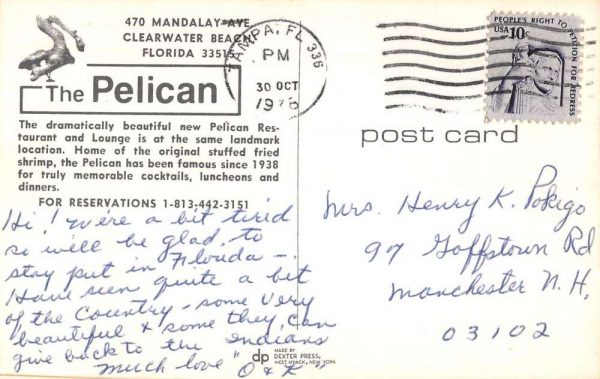 470 MANDALAY AVE.
CLEARWATER BEACH
FLORIDA 33515
The Pelican
The dramatically beautiful new Pelican Res-
taurant and Lounge is at the same landmark
location. Home of the original stuffed fried
shrimp, the Pelican has been famous since 1938
for truly memorable cocktails, luncheons and
dinners.
FOR RESERVATIONS 1-813-442-3151
Hi! We're a bit tired
so we'll be glad to
stay put in Florida -
Have seen quite a bit
of the Country - some very
beautiful & some they can
give back to the Indians
Much love "O & K"
TAMPA, FL 336
PM
30 OCT
PEOPLE'S RIGHT TO PETITION FOR REDRESS
USA 10c
post card
Mrs. Henry K. Pokigo
97 Goffstown Rd
Manchester N.H.
03102
dp
MADE BY
DEXTER PRESS,
WEST NYACK, NEW YORK